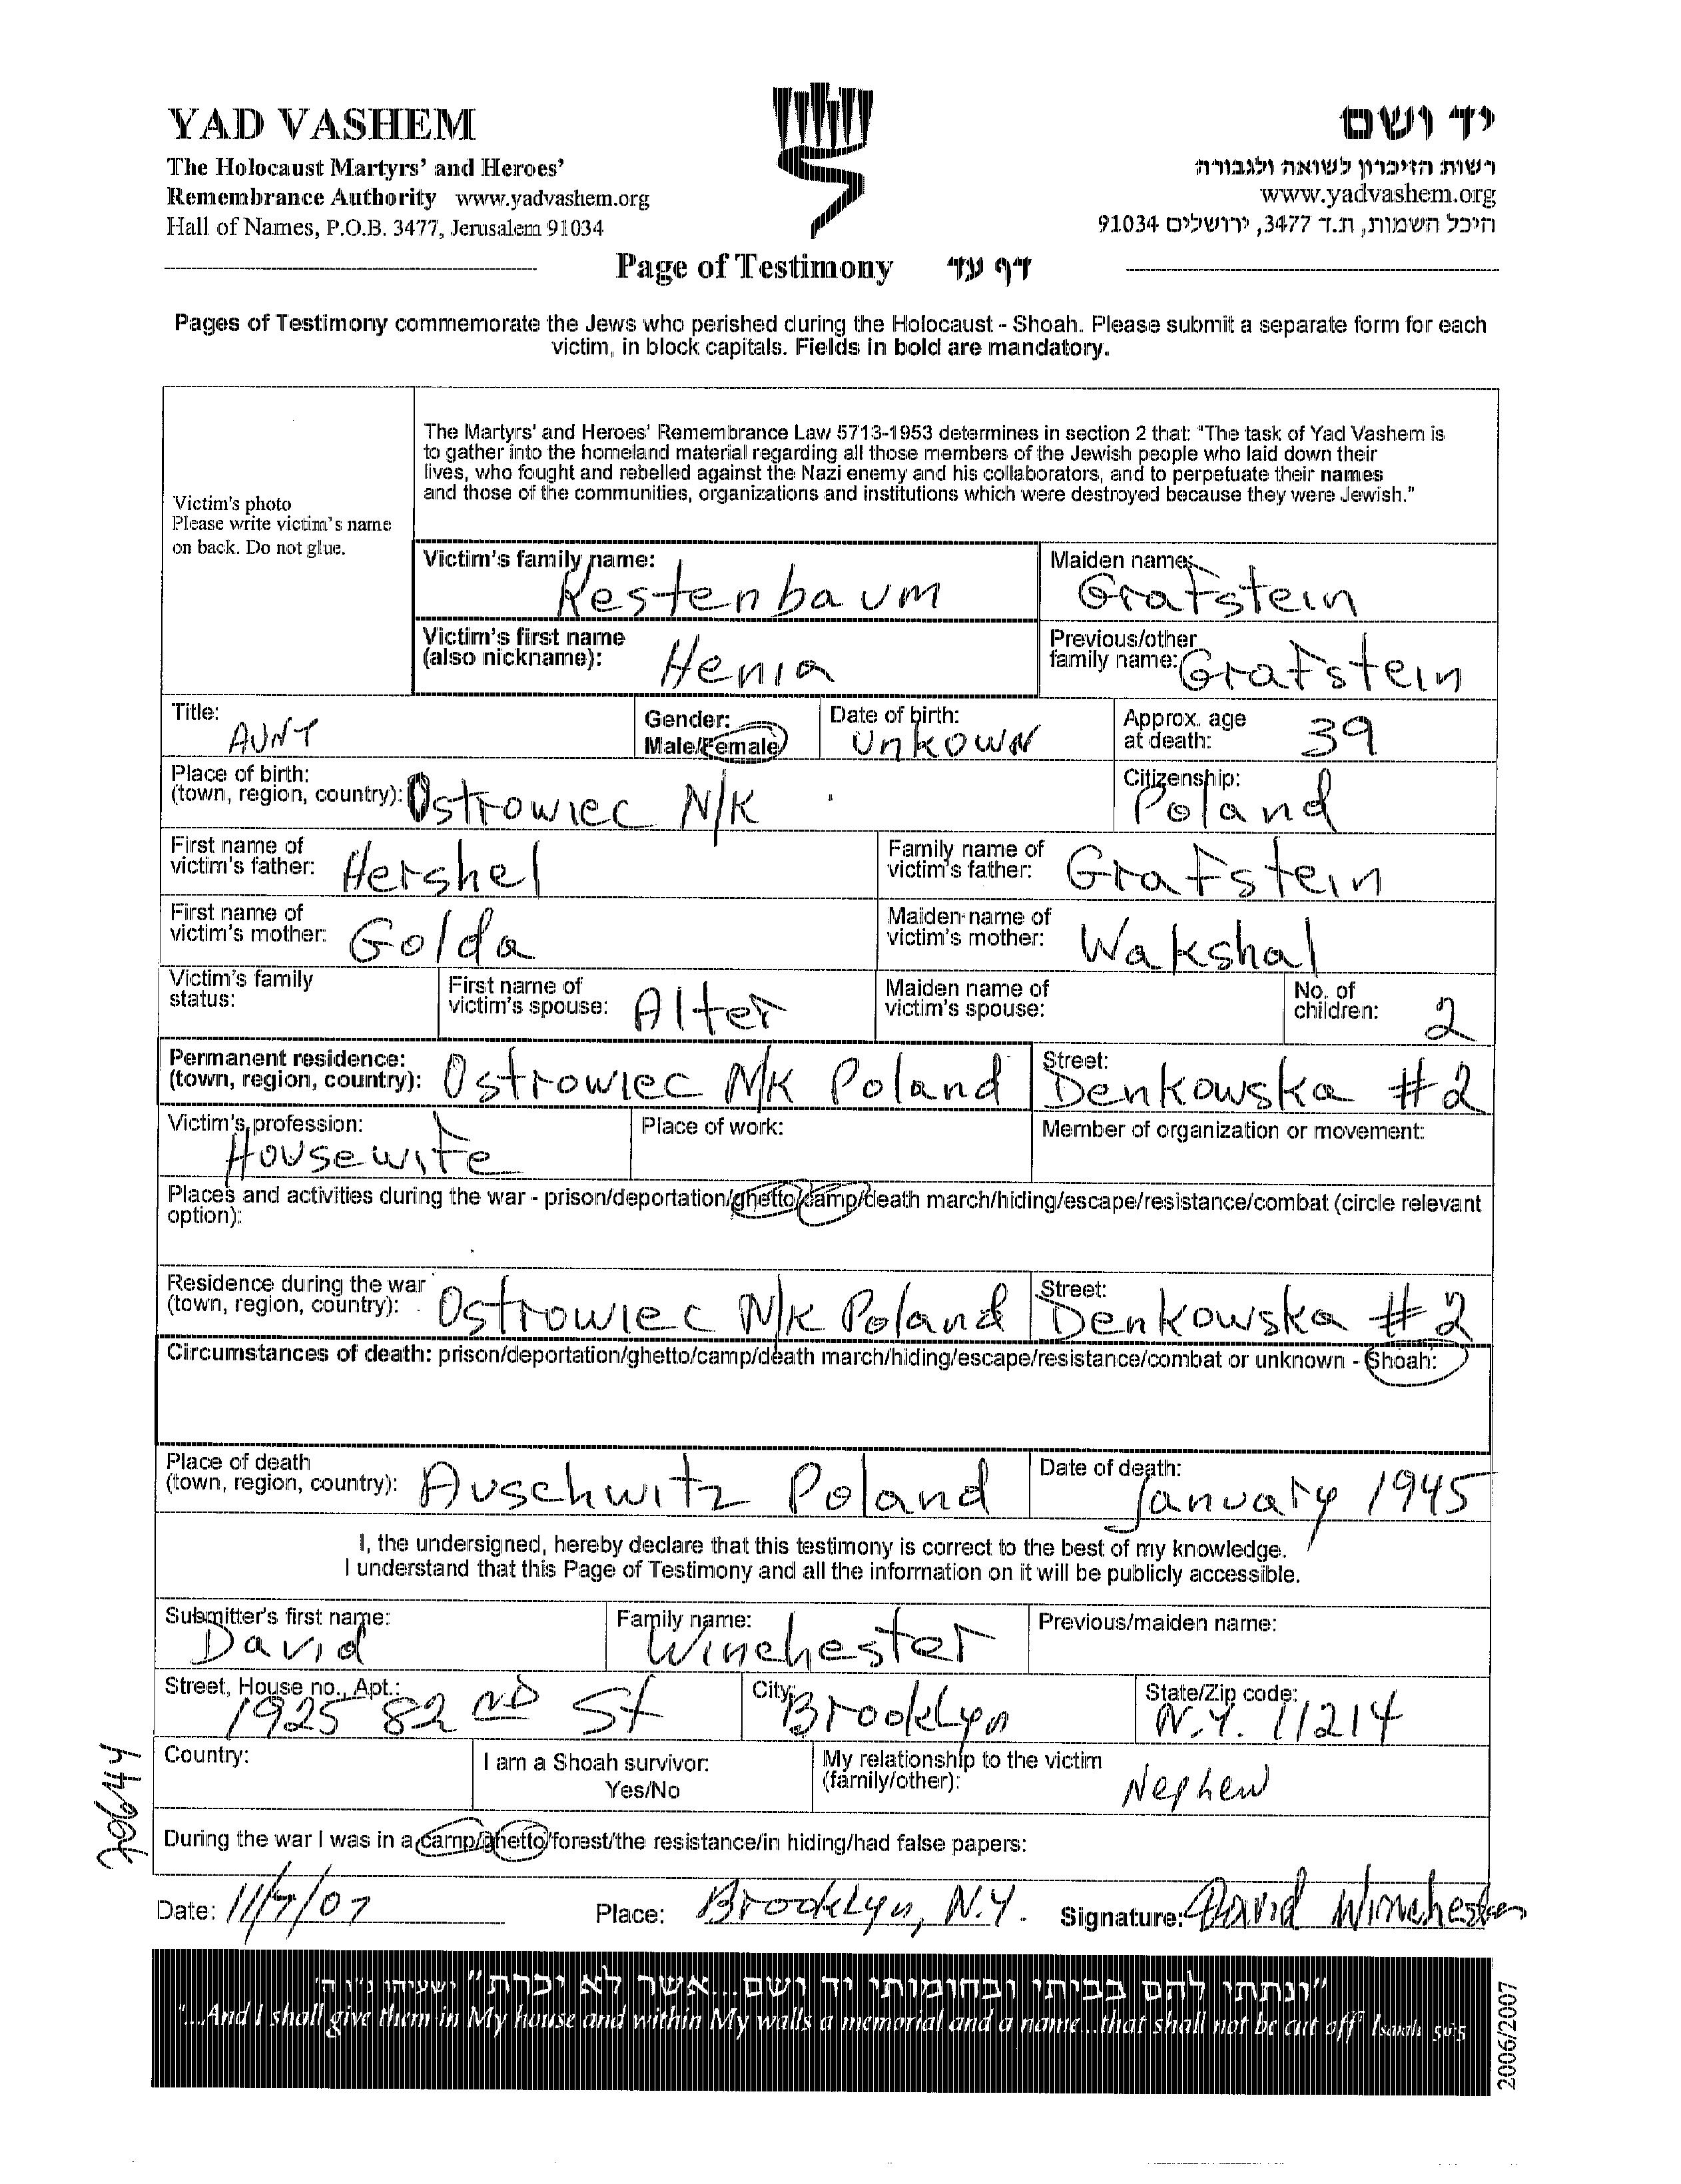 YAD VASHEM
The Holocaust Martyrs' and Heroes'
Remembrance Authority www.yadvashem.org
Hall of Names, P.O.B. 3477, Jerusalem 91034
יד ושם
רשות הזיכרון לשואה ולגבורה
www.yadvashem.org
היכל השמות, ת.ד 3477, ירושלים 91034
Page of Testimony דף עד
Pages of Testimony commemorate the Jews who perished during the Holocaust - Shoah. Please submit a separate form for each
victim, in block capitals. Fields in bold are mandatory.
Victim's photo
Please write victim's name
on back. Do not glue.
The Martyrs' and Heroes' Remembrance Law 5713-1953 determines in section 2 that: "The task of Yad Vashem is
to gather into the homeland material regarding all those members of the Jewish people who laid down their
lives, who fought and rebelled against the Nazi enemy and his collaborators, and to perpetuate their names
and those of the communities, organizations and institutions which were destroyed because they were Jewish."
Victim's family name: Kestenbaum
Maiden name: Grafstein
Victim's first name
(also nickname): Henia
Previous/other
family name: Grafstein
Title: AUNT
Gender:
Male/Female
Date of birth:
Unkown
Approx. age
at death: 39
Place of birth:
(town, region, country): Ostrowiec N/K
Citizenship:
Poland
First name of
victim's father: Hershel
Family name of
victim's father: Grafstein
First name of
victim's mother: Golda
Maiden name of
victim's mother: Wakshal
Victim's family
status:
First name of
victim's spouse: Alter
Maiden name of
victim's spouse:
No. of
children: 2
Permanent residence:
(town, region, country): Ostrowiec N/K Poland
Street:
Denkowska #2
Victim's profession:
Housewife
Place of work:
Member of organization or movement:
Places and activities during the war - prison/deportation/ghetto/camp/death march/hiding/escape/resistance/combat (circle relevant
option):
Residence during the war
(town, region, country): Ostrowiec N/K Poland
Street:
Denkowska #2
Circumstances of death: prison/deportation/ghetto/camp/death march/hiding/escape/resistance/combat or unknown - Shoah:
Place of death
(town, region, country): Auschwitz Poland
Date of death:
January 1945
I, the undersigned, hereby declare that this testimony is correct to the best of my knowledge.
I understand that this Page of Testimony and all the information on it will be publicly accessible.
Submitter's first name:
David
Family name:
Winchester
Previous/maiden name:
Street, House no., Apt.:
1925 82 ND St
City:
Brooklyn
State/Zip code:
N.Y. 11214
Country:
I am a Shoah survivor:
Yes/No
My relationship to the victim
(family/other): Nephew
During the war I was in a camp/ghetto/forest/the resistance/in hiding/had false papers:
Date: 11/7/07
Place: Brooklyn, N.Y.
Signature: David Winchester
"ונתתי להם בביתי ובחומותי יד ושם...אשר לא יכרת" ישעיהו נ"ו ה'
"...And I shall give them in My house and within My walls a memorial and a name...that shall not be cut off" Isaiah 56:5
2006/2007